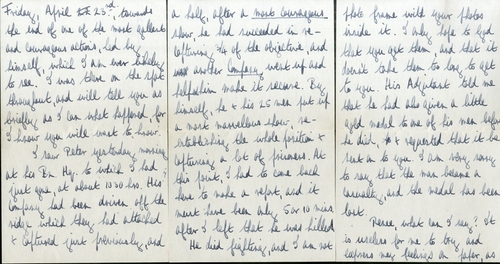 Friday, April 23rd, towards
the end of one of the most gallant
and courageous actions, led by
himself, which I am ever likely
to see. I was there on the spot
throughout, and will tell you as
briefly as I can what happened, for
I know you will want to know.
I saw Peter yesterday morning
at his Bn. Hq. to which I had
just gone, at about 1030 hrs. His
Company had been driven off the
ridge which they had attacked
& captured just previously, and
a hell, after a most courageous
show, he had succeeded in re-
capturing ¾ of the objective, and
another Company went up and
helped him make it secure. By
himself, he & his 25 men put up
a most marvellous show, re-
establishing the whole position &
capturing a lot of prisoners. At
this point, I had to come back
here to make a report, and it
must have been only 5 or 10 mins
after I left that he was killed
He died fighting, and I am not
photo frame with your photos
inside it. I only hope to God
that you get them, and that it
doesn't take them too long to get
to you. His Adjutant told me
that he had also given a little
gold medal to one of his men before
he died, & requested that it be
sent on to you. I am very sorry
to say that the man became a
casualty, and the medal has been
lost.
what can I say? It
is useless for me to try and
express my feelings on paper, as